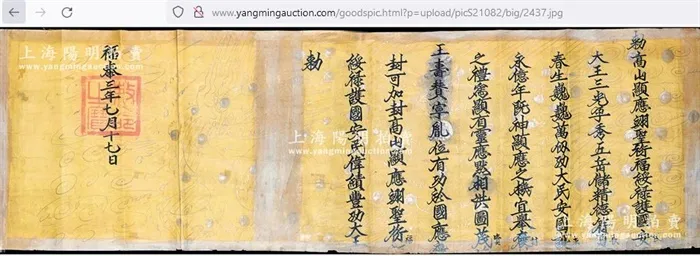 www.yangmingauction.com/goodspic.html?p=upload/picS21082/big/2437.jpg
勅高山顯應翊聖衍福綏祿護國安
大王三光孕秀五岳儲精德
春生巍巍萬仞功大民安國
永億年既神顯應之機宜舉褒
之禮意顯有靈應默相洪圖茂
王壽贊寧胤位有功於國應
封可加封高山顯應翊聖衍
綏祿護國安民偉績豐功大王
勅
福泰三年七月十七日
上海陽明拍賣
www.yangmingauction.com
上海陽明拍賣
www.yangmingauction.com
上海陽明拍賣
www.yangmingauction.com